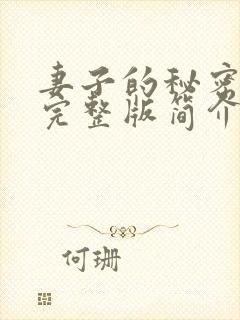 妻子的秘密
完整版简介
何珊